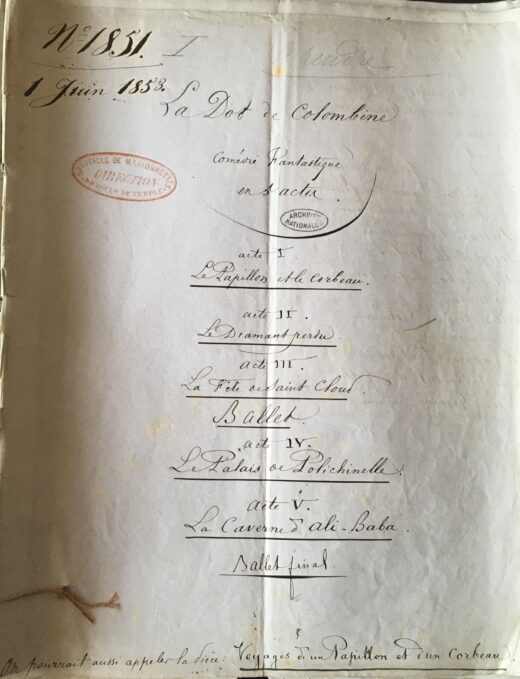 No 1851. I
1 Juin 1853.
La Dot de Colombine
Comédie Fantastique
en 5 actes.
SPECTACLE DE MARIONNETTES
DIRECTION
DU TEMPLE
ARCHIVES
NATIONALES
acte I.
Le Papillon et le Corbeau.
acte II.
Le Diamant perdu
acte III.
La Fête de Saint Cloud.
Ballet.
acte IV.
Le Palais de Polichinelle.
acte V.
La Caverne d'Ali-Baba.
Ballet final.
On pourrait aussi appeler la pièce: Voyages d'un Papillon et d'un Corbeau